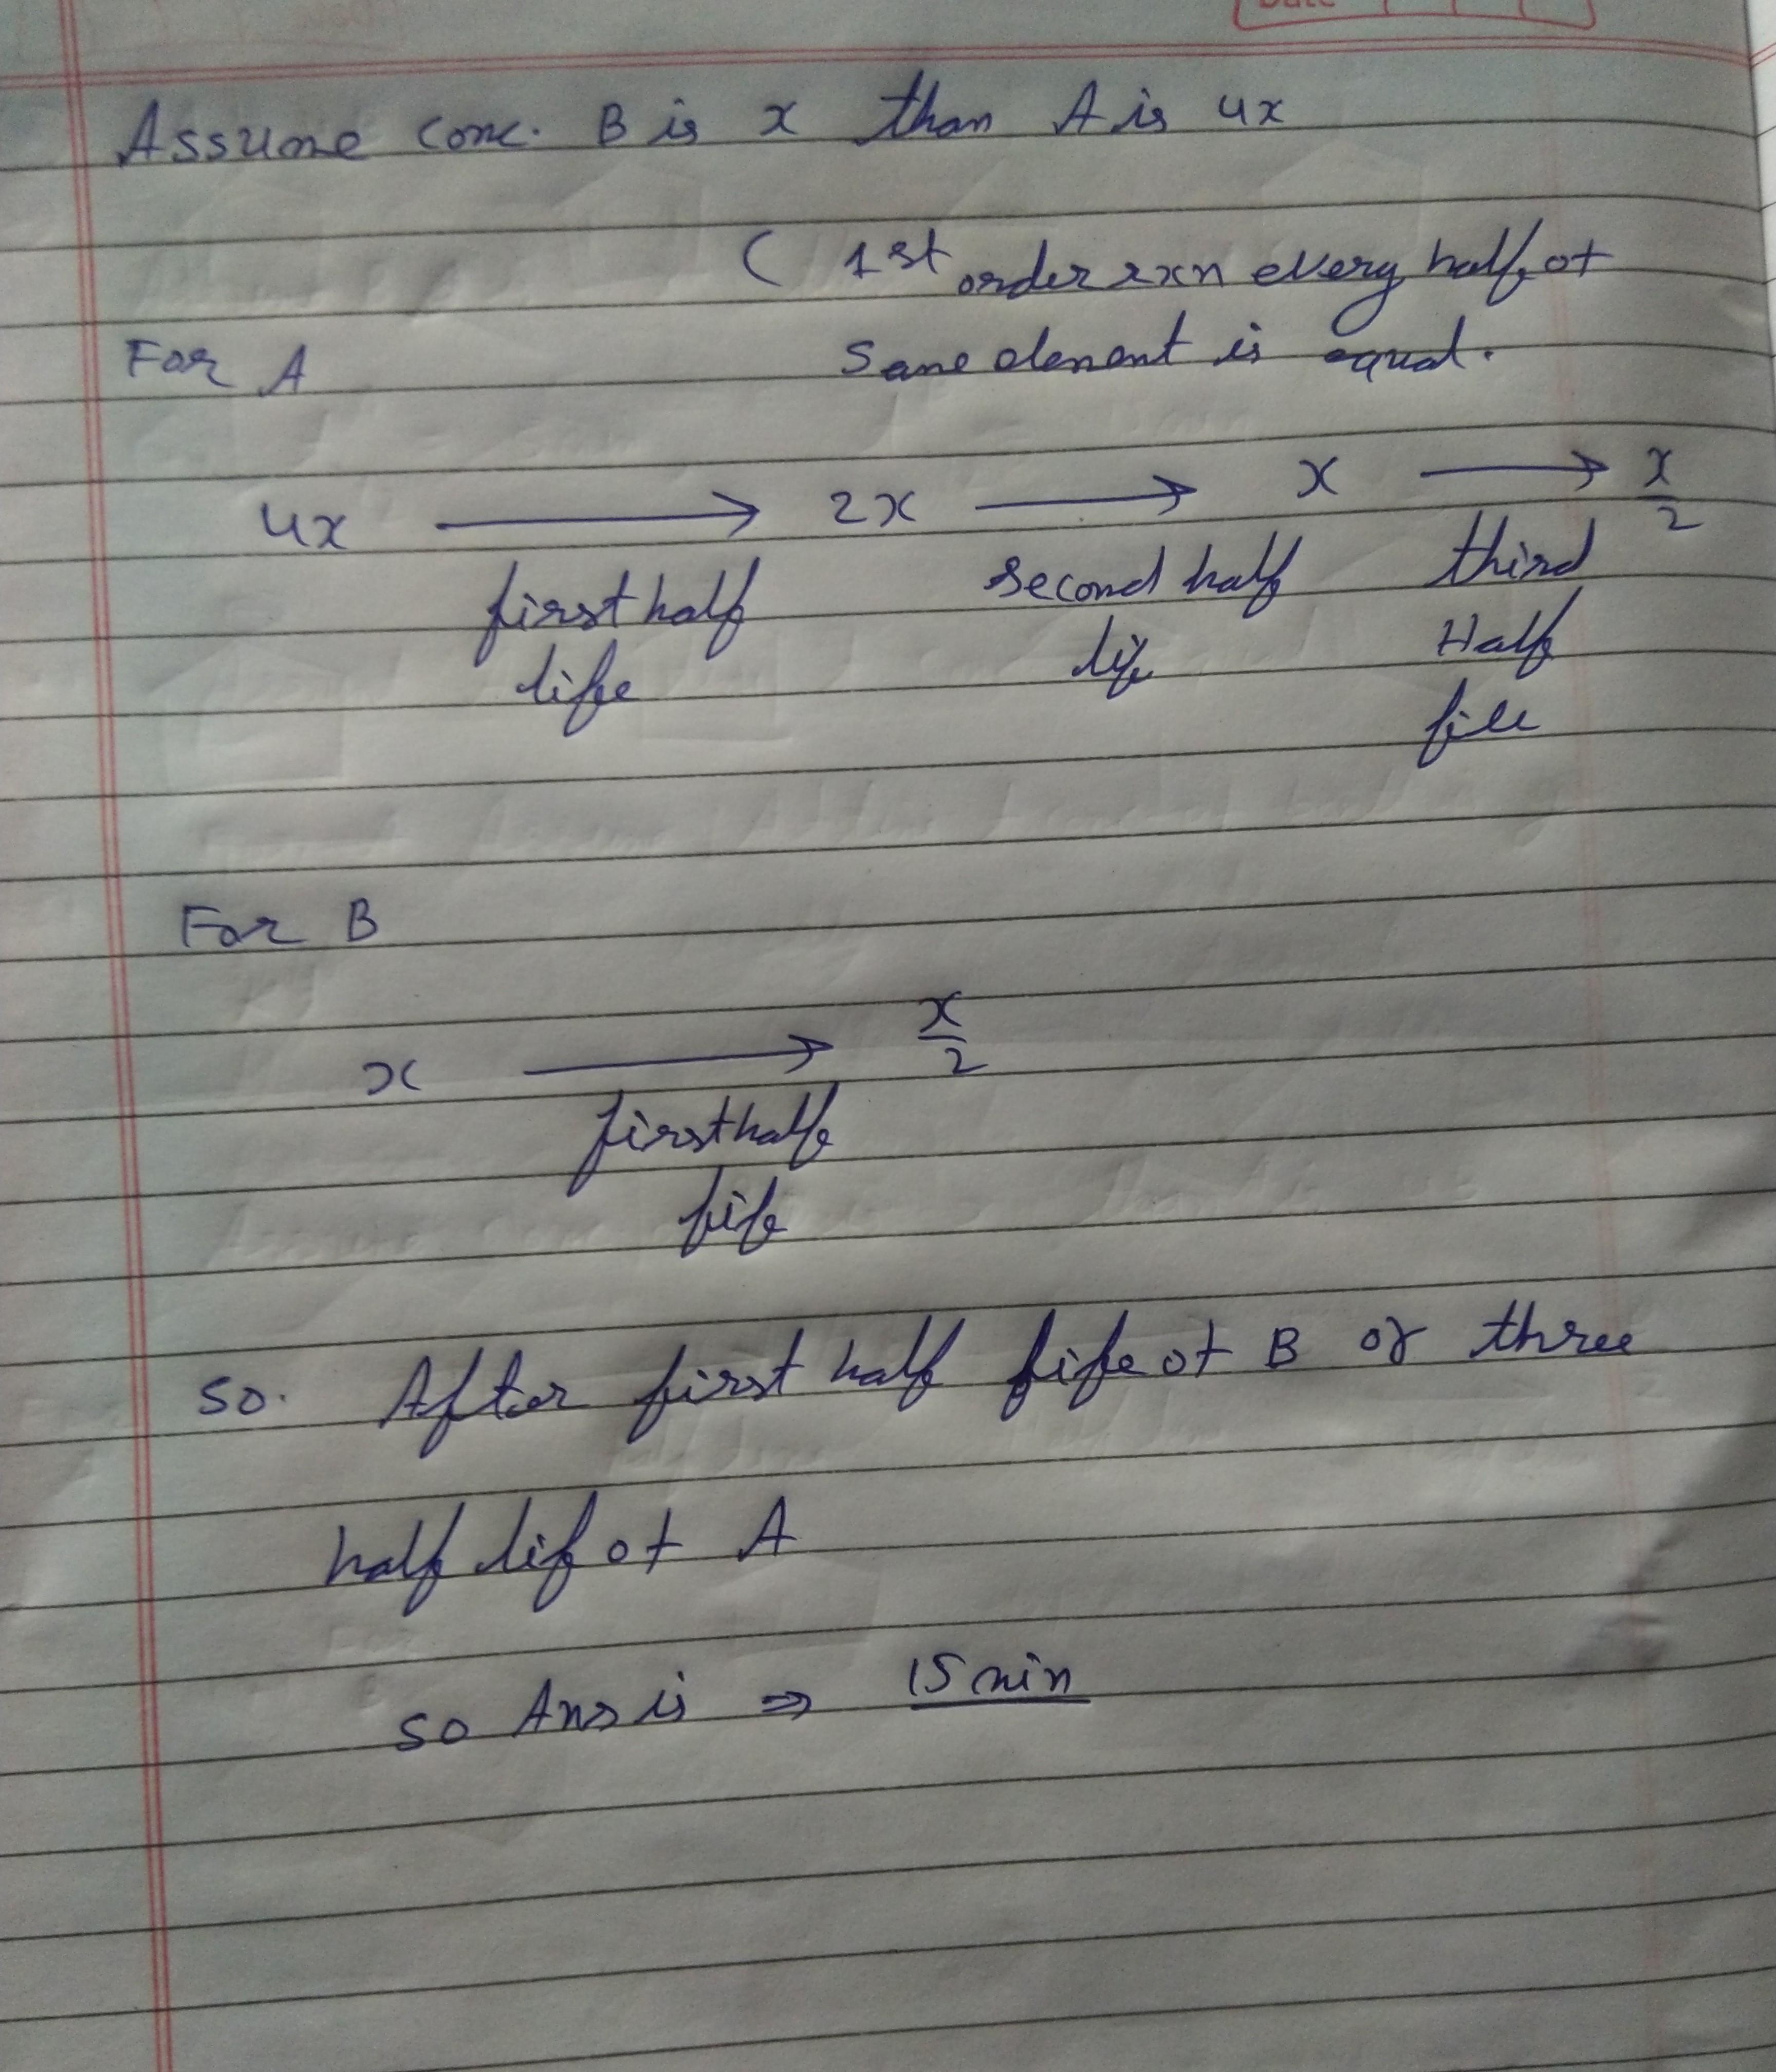 Date
Assume conc. B is x than A is 4x
( 1st order rxn every half of
same element is equal.
For A
4x ⟶ 2x ⟶ x ⟶ x/2
first half life
second half life
third Half file
For B
x ⟶ x/2
first half
fife
so. After first half fife of B or three
half lif of A
so Ans is ⇒ 15 min